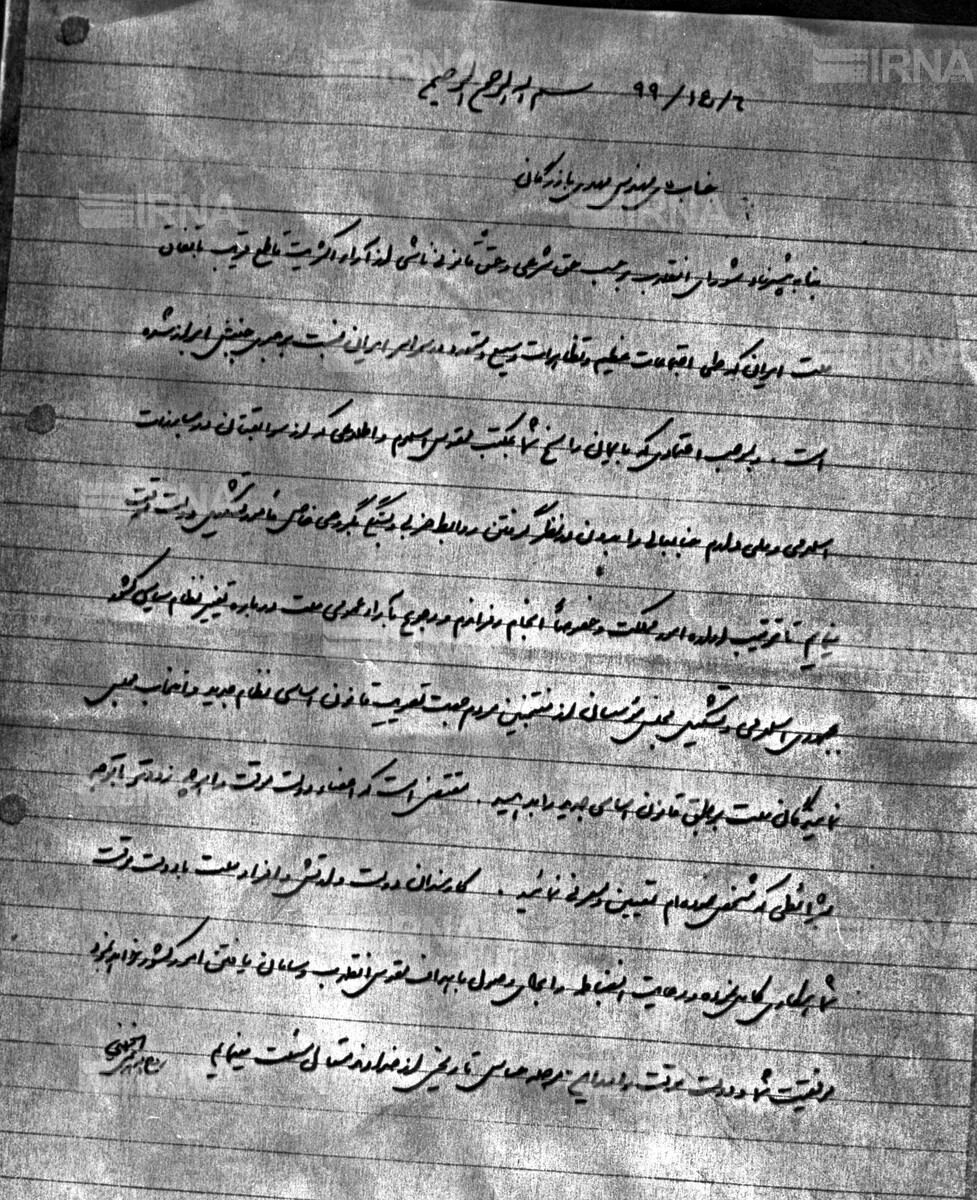 بسم الله الرحمن الرحیم ۶/ع۱/۹۹
جناب آقای مهندس مهدی بازرگان
بنا به پیشنهاد شورای انقلاب بر حسب حق شرعی و حق قانونی ناشی از آراء اکثریت قاطع قریب باتفاق
ملت ایران که طی اجتماعات عظیم و تظاهرات وسیع و متعدد در سراسر ایران نسبت برهبری جنبش ابراز شده
است . و بموجب اعتمادی که بایمان راسخ شما بمکتب مقدس اسلام و اطلاعی که از سوابقتان در مبارزات
اسلامی و ملی دارم جنابعالی را بدون در نظر گرفتن روابط حزبی و بستگی بگروهی خاص مامور تشکیل دولت موقت
مینمایم تا ترتیب اداره امور مملکت و خصوصاً انجام رفراندم و رجوع بآراء عمومی ملت درباره تغییر نظام سیاسی کشور
بجمهوری اسلامی و تشکیل مجلس مؤسسان از منتخبین مردم جهت تصویب قانون اساسی نظام جدید و انتخاب مجلس
نمایندگان ملت بر طبق قانون اساسی جدید را بدهید . مقتضی است که اعضاء دولت موقت را هر چه زودتر با توجه
بشرائطی که مشخص نموده‌ام تعیین و معرفی نمائید . کارمندان دولت و ارتش و افراد ملت با دولت موقت
شما همکاری کامل نموده و رعایت انضباط را برای وصول باهداف مقدس انقلاب و سامان یافتن امور کشور خواهند نمود
موفقیت شما و دولت موقت را در این مرحله حساس تاریخی از خداوند متعال مسئلت مینمایم
IRNA